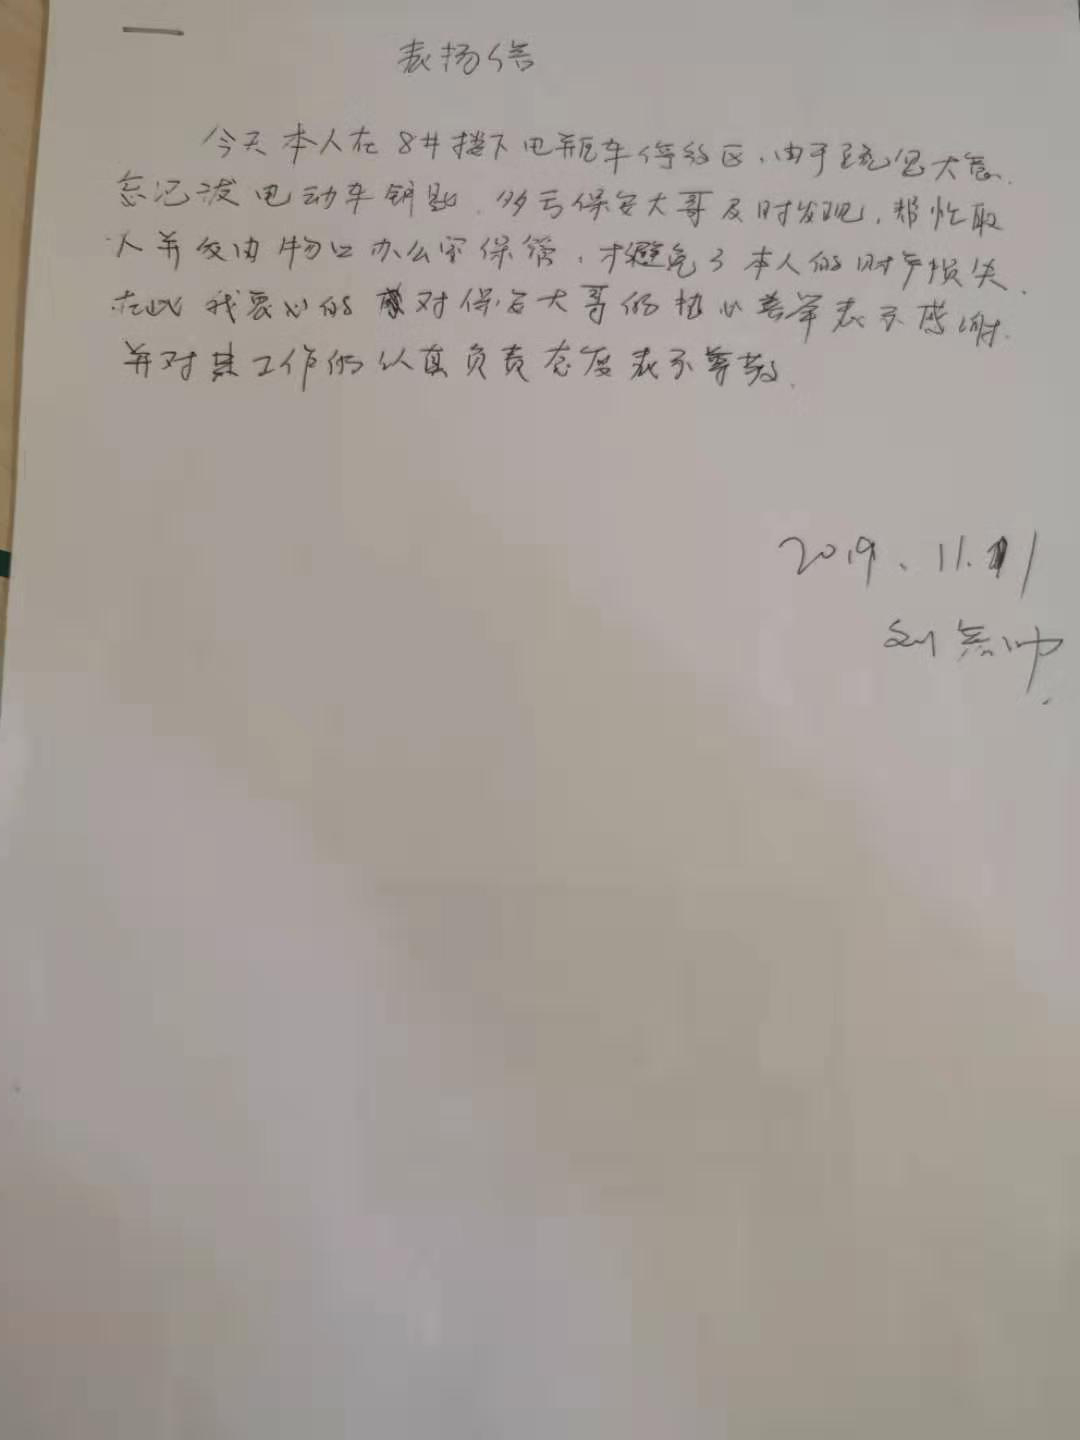 表扬信
今天本人在8#楼下电瓶车停放区，由于疏忽大意，
忘记拔电动车钥匙，多亏保安大哥及时发现，帮忙取
下并交由物口办公室保管，才避免了本人的财产损失，
在此我衷心的对保安大哥的热心善举表示感谢，
并对其工作的认真负责态度表示尊敬。
2019.11.11
刘志帅